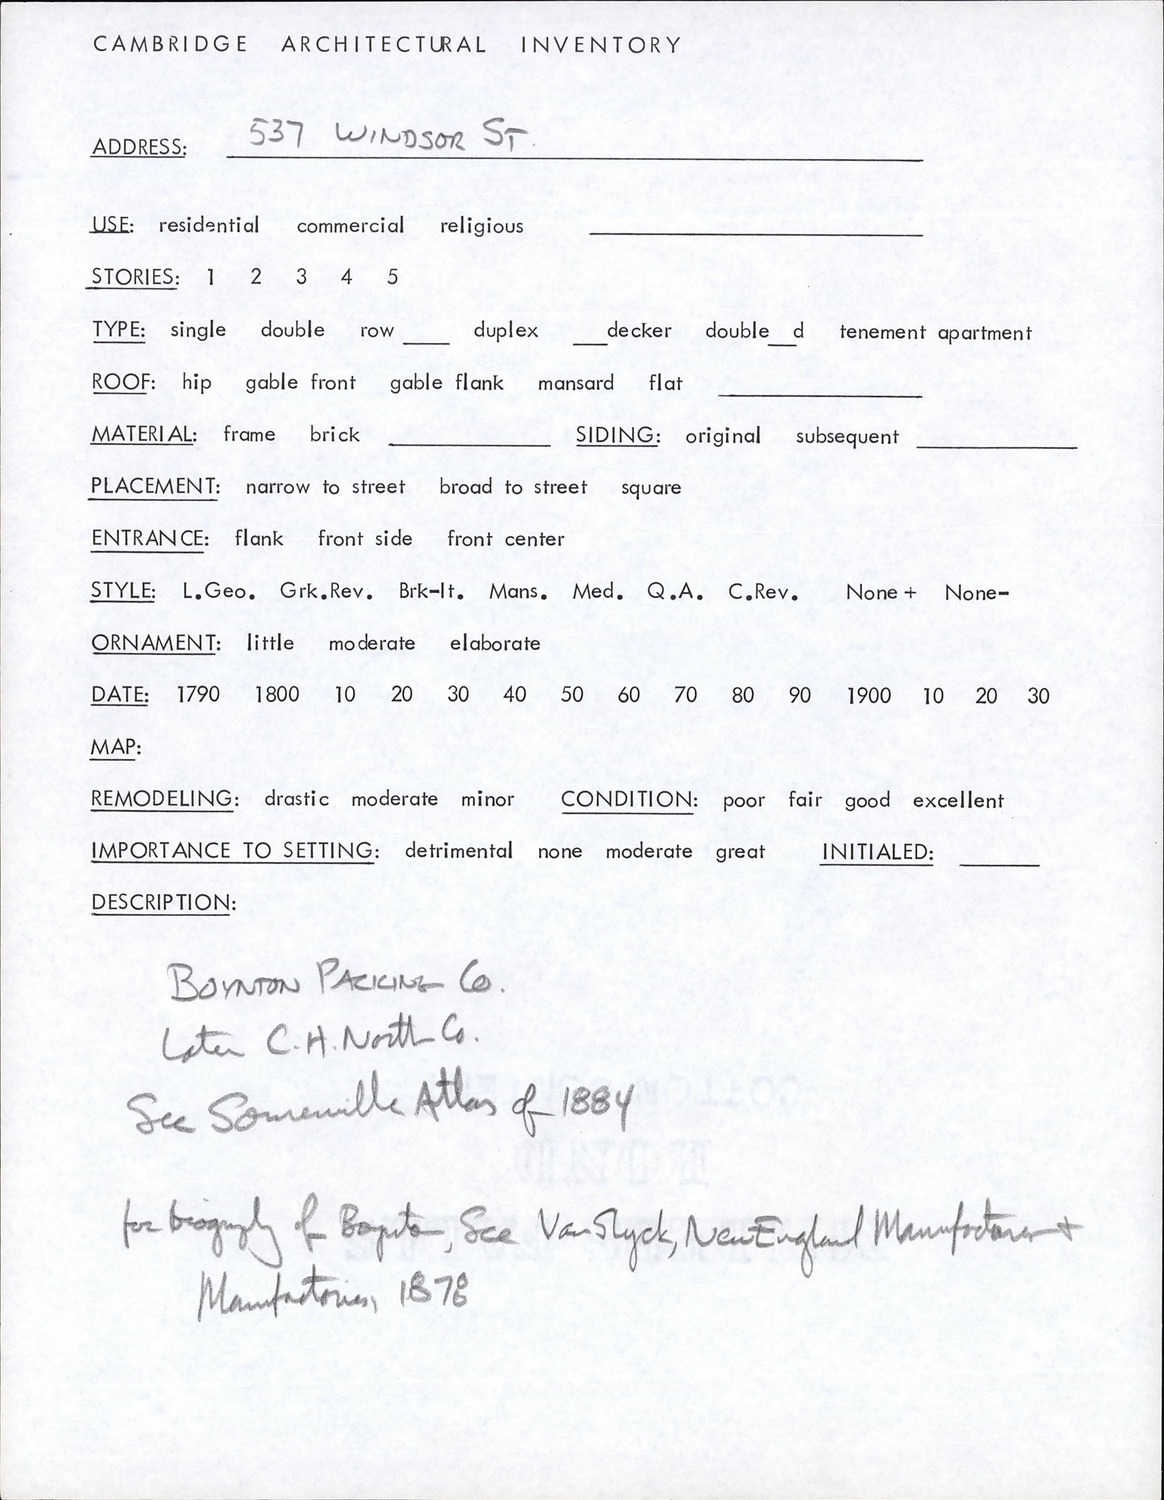 CAMBRIDGE ARCHITECTURAL INVENTORY
ADDRESS: 537 WINDSOR ST.
USE: residential commercial religious
STORIES: 1 2 3 4 5
TYPE: single double row ____ duplex ___decker double__d tenement apartment
ROOF: hip gable front gable flank mansard flat
MATERIAL: frame brick ____ SIDING: original subsequent ____
PLACEMENT: narrow to street broad to street square
ENTRANCE: flank front side front center
STYLE: L.Geo. Grk.Rev. Brk-It. Mans. Med. Q.A. C.Rev. None + None-
ORNAMENT: little moderate elaborate
DATE: 1790 1800 10 20 30 40 50 60 70 80 90 1900 10 20 30
MAP:
REMODELING: drastic moderate minor CONDITION: poor fair good excellent
IMPORTANCE TO SETTING: detrimental none moderate great INITIALED: ____
DESCRIPTION:
BOYNTON PACKING Co.
Later C.H. North Co.
See Somerville Atlas of 1884
for biography of Boynton, See VanSlyck, New England Manufacturers +
Manufactories, 1878